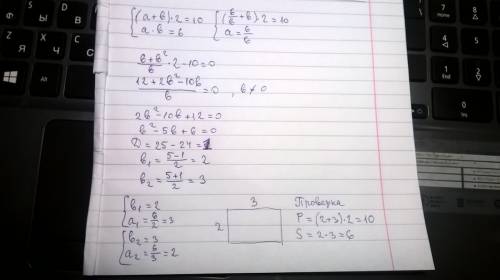 {(a+b)·2=10 {(6/b+b)·2=10
{a·b=6 {a=6/b
6+b²/b ·2-10=0
12+2b²-10b/b =0, b≠0
2b²-10b+12=0
b²-5b+6=0
D=25-24=1
b₁=5-1/2=2
b₂=5+1/2=3
{b₁=2
{a₁=6/2=3
{b₂=3
{a₂=6/3=2
3
2
Проверка
P=(2+3)·2=10
S=2·3=6